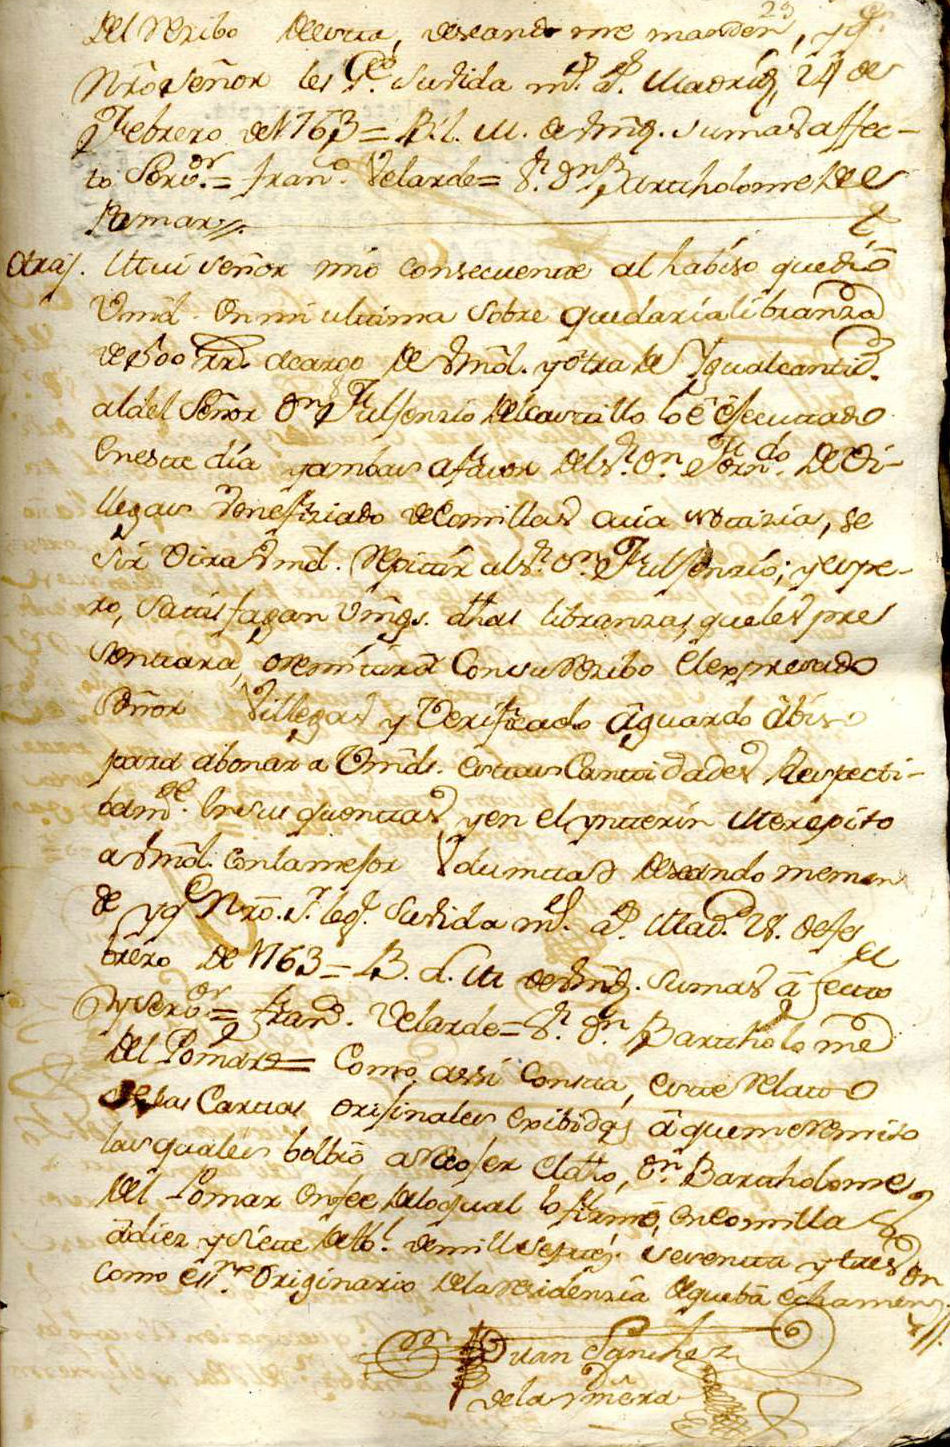 23
del Rezibo de esta, deseando me manden, y q.e
Nrõ señor les g.e su vida m.s a.s Madrid, 24 de
Febrero de 1763 = B. l. M. de Vmd. su mas affec-
to Serv.or = Fran.co Velarde = S.r D.n Bartholome del
Pomar //.
Otra /. Mui señor mio consecuente al habiso que dio
Vmd. en mi ultima sobre que daria libranza
de 1500 rr.s a cargo de Vmd. y otra de Ygual cantid.d
al del Señor D.n Fulgenzio del Castillo lo è èfecutado
en este dia y ambas a favor del S.r D.n Fern.do de Vi-
llegas Venefiziado de Comillas cuia notizia, se
sirvira Vmd. Repitir al S.r D.n Fulgenzio; y espe-
ro, Satisfagan Vmds. dhas libranzas, que les pre
sentara, o remitirá con su Rezibo el expresado
Señor Villegas y Verificado aguardo abiso
para abonar a Vmds. estas Cantidades Respecti-
bam.te en sus quentas, y en el ynterin Me repito
a Vmd. con la mejor Voluntad deseando me man
de y q.e Nrõ. S.r le g.e su vida m.s a.s Mad.d 28. de fe
brero de 1763 = B. L. M de Vmd. su mas afecto
y Serv.or = Fran.co Velarde = S.r D.n Bartholomé
del Pomar = Como, assi consta, este Relato
de las Cartas orijinales exibidas a que me remito
las quales bolbiò a recojer el dho, D.n Bartholome
del Pomar en fee de lo qual lo firmé, en Comillas
a diez y siete de Ab.l de mill setez.s sesenta y tres
como ess.no Originario de la residenzia de que ba echa menz.on //.
Juan Sanchez
de la